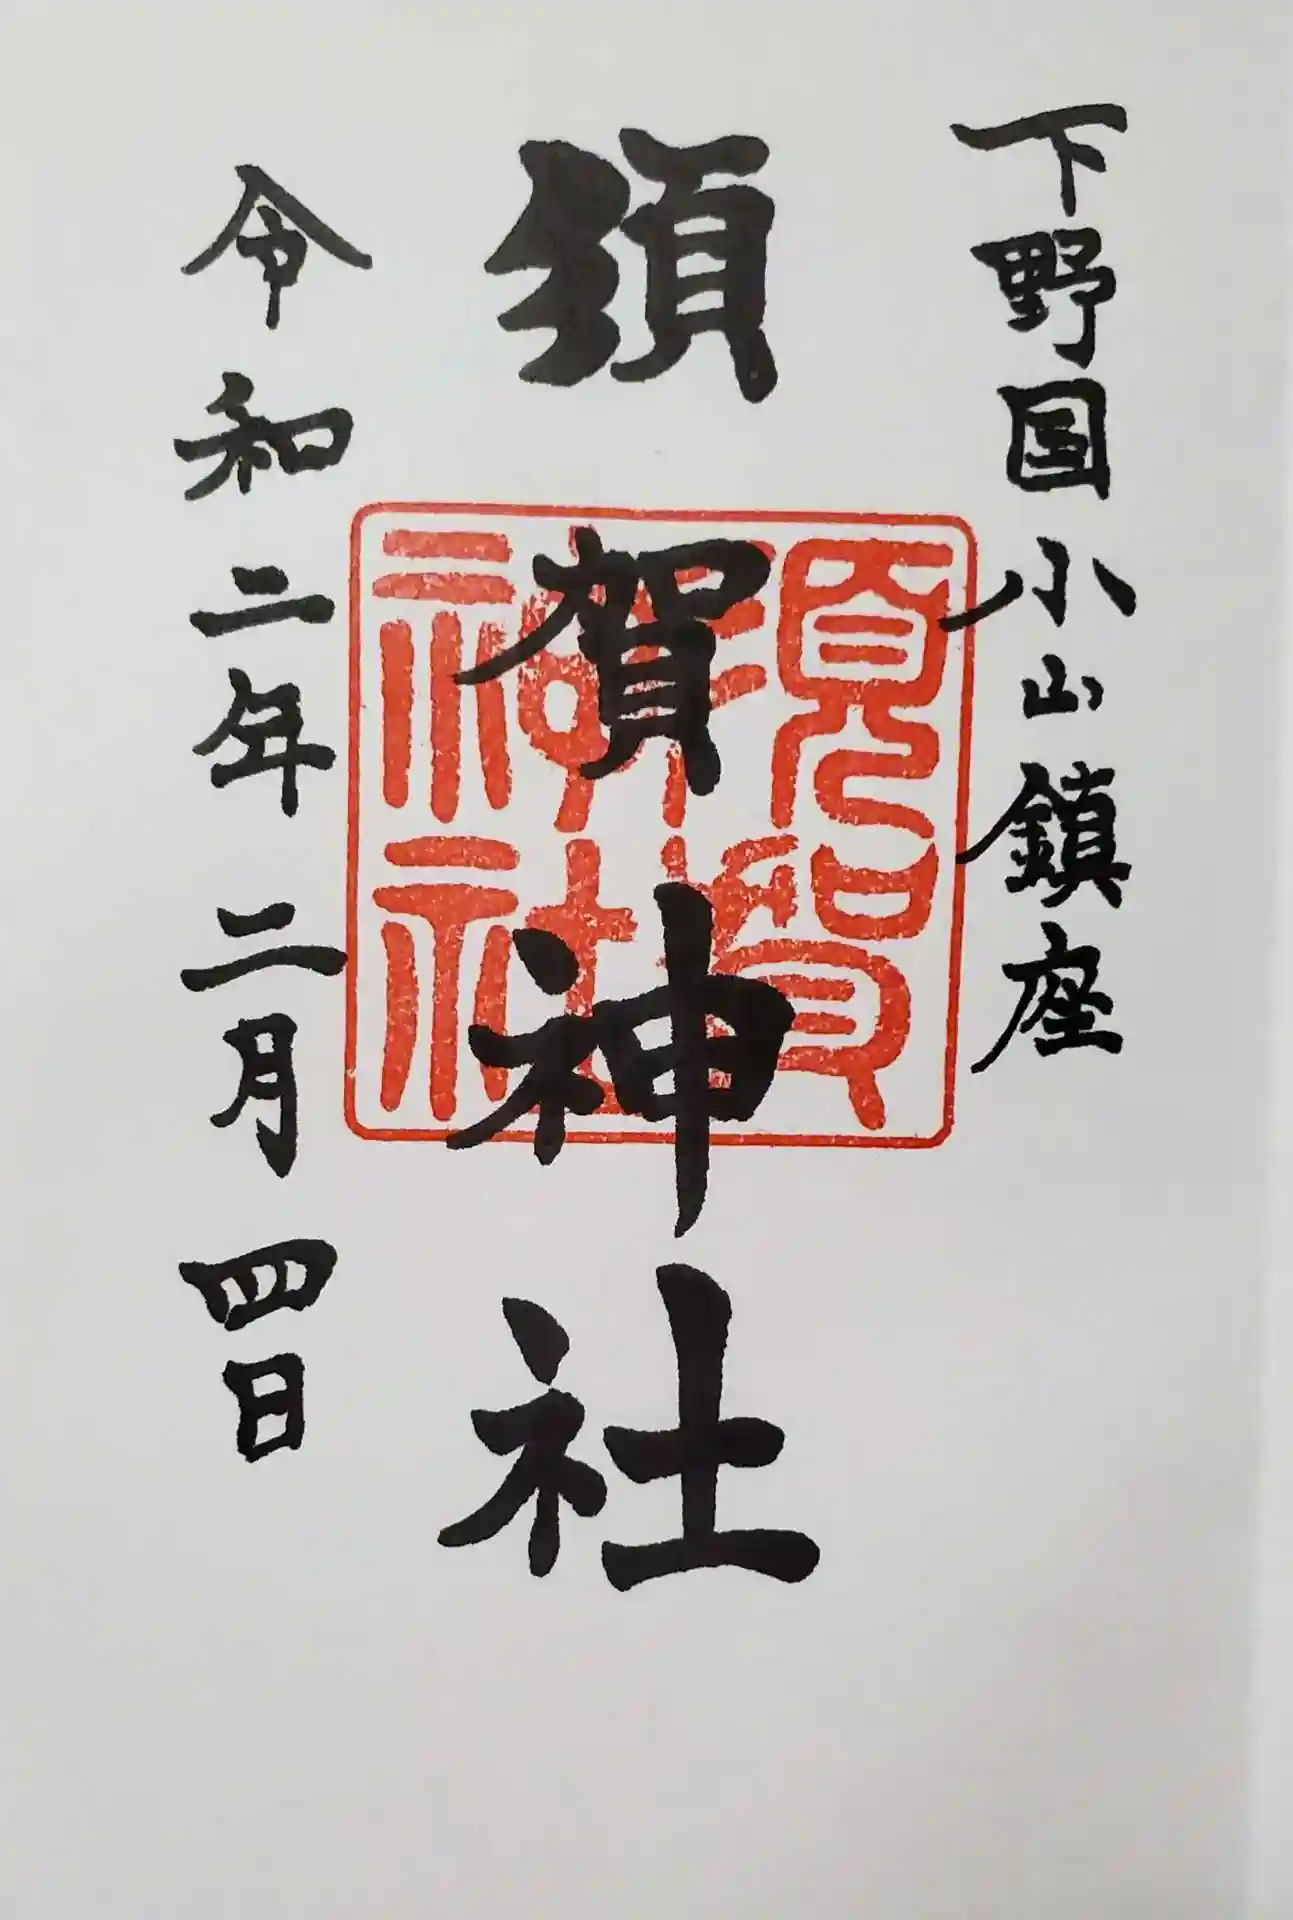 下野国小山鎮座
須賀神社
須賀
神社
令和二年二月四日